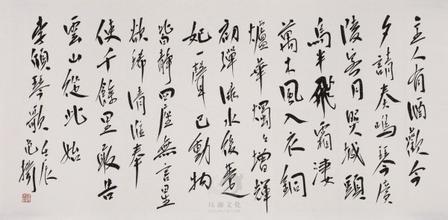 主人有酒歡今
夕請奏鳴琴廣
陵客月照城頭
烏半飛霜淒
萬木風入衣銅
爐華燭々增輝
初彈淥水後楚
妃一聲已動物
皆靜四座無言星
欲稀清淮奉
使千餘里敢告
雲山從此始
李頎琴歌